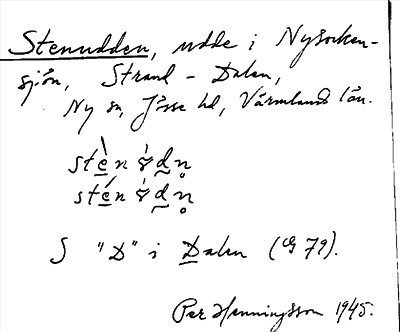 Stenudden, udde i Nysocken-
sjön, Strand - Dalen,
Ny sn, Jösse hd, Värmlands län.
stèn ỳdn̥
stén ỳdn̥
S "D" i Dalen (G 79).
Per Henningsson 1945.